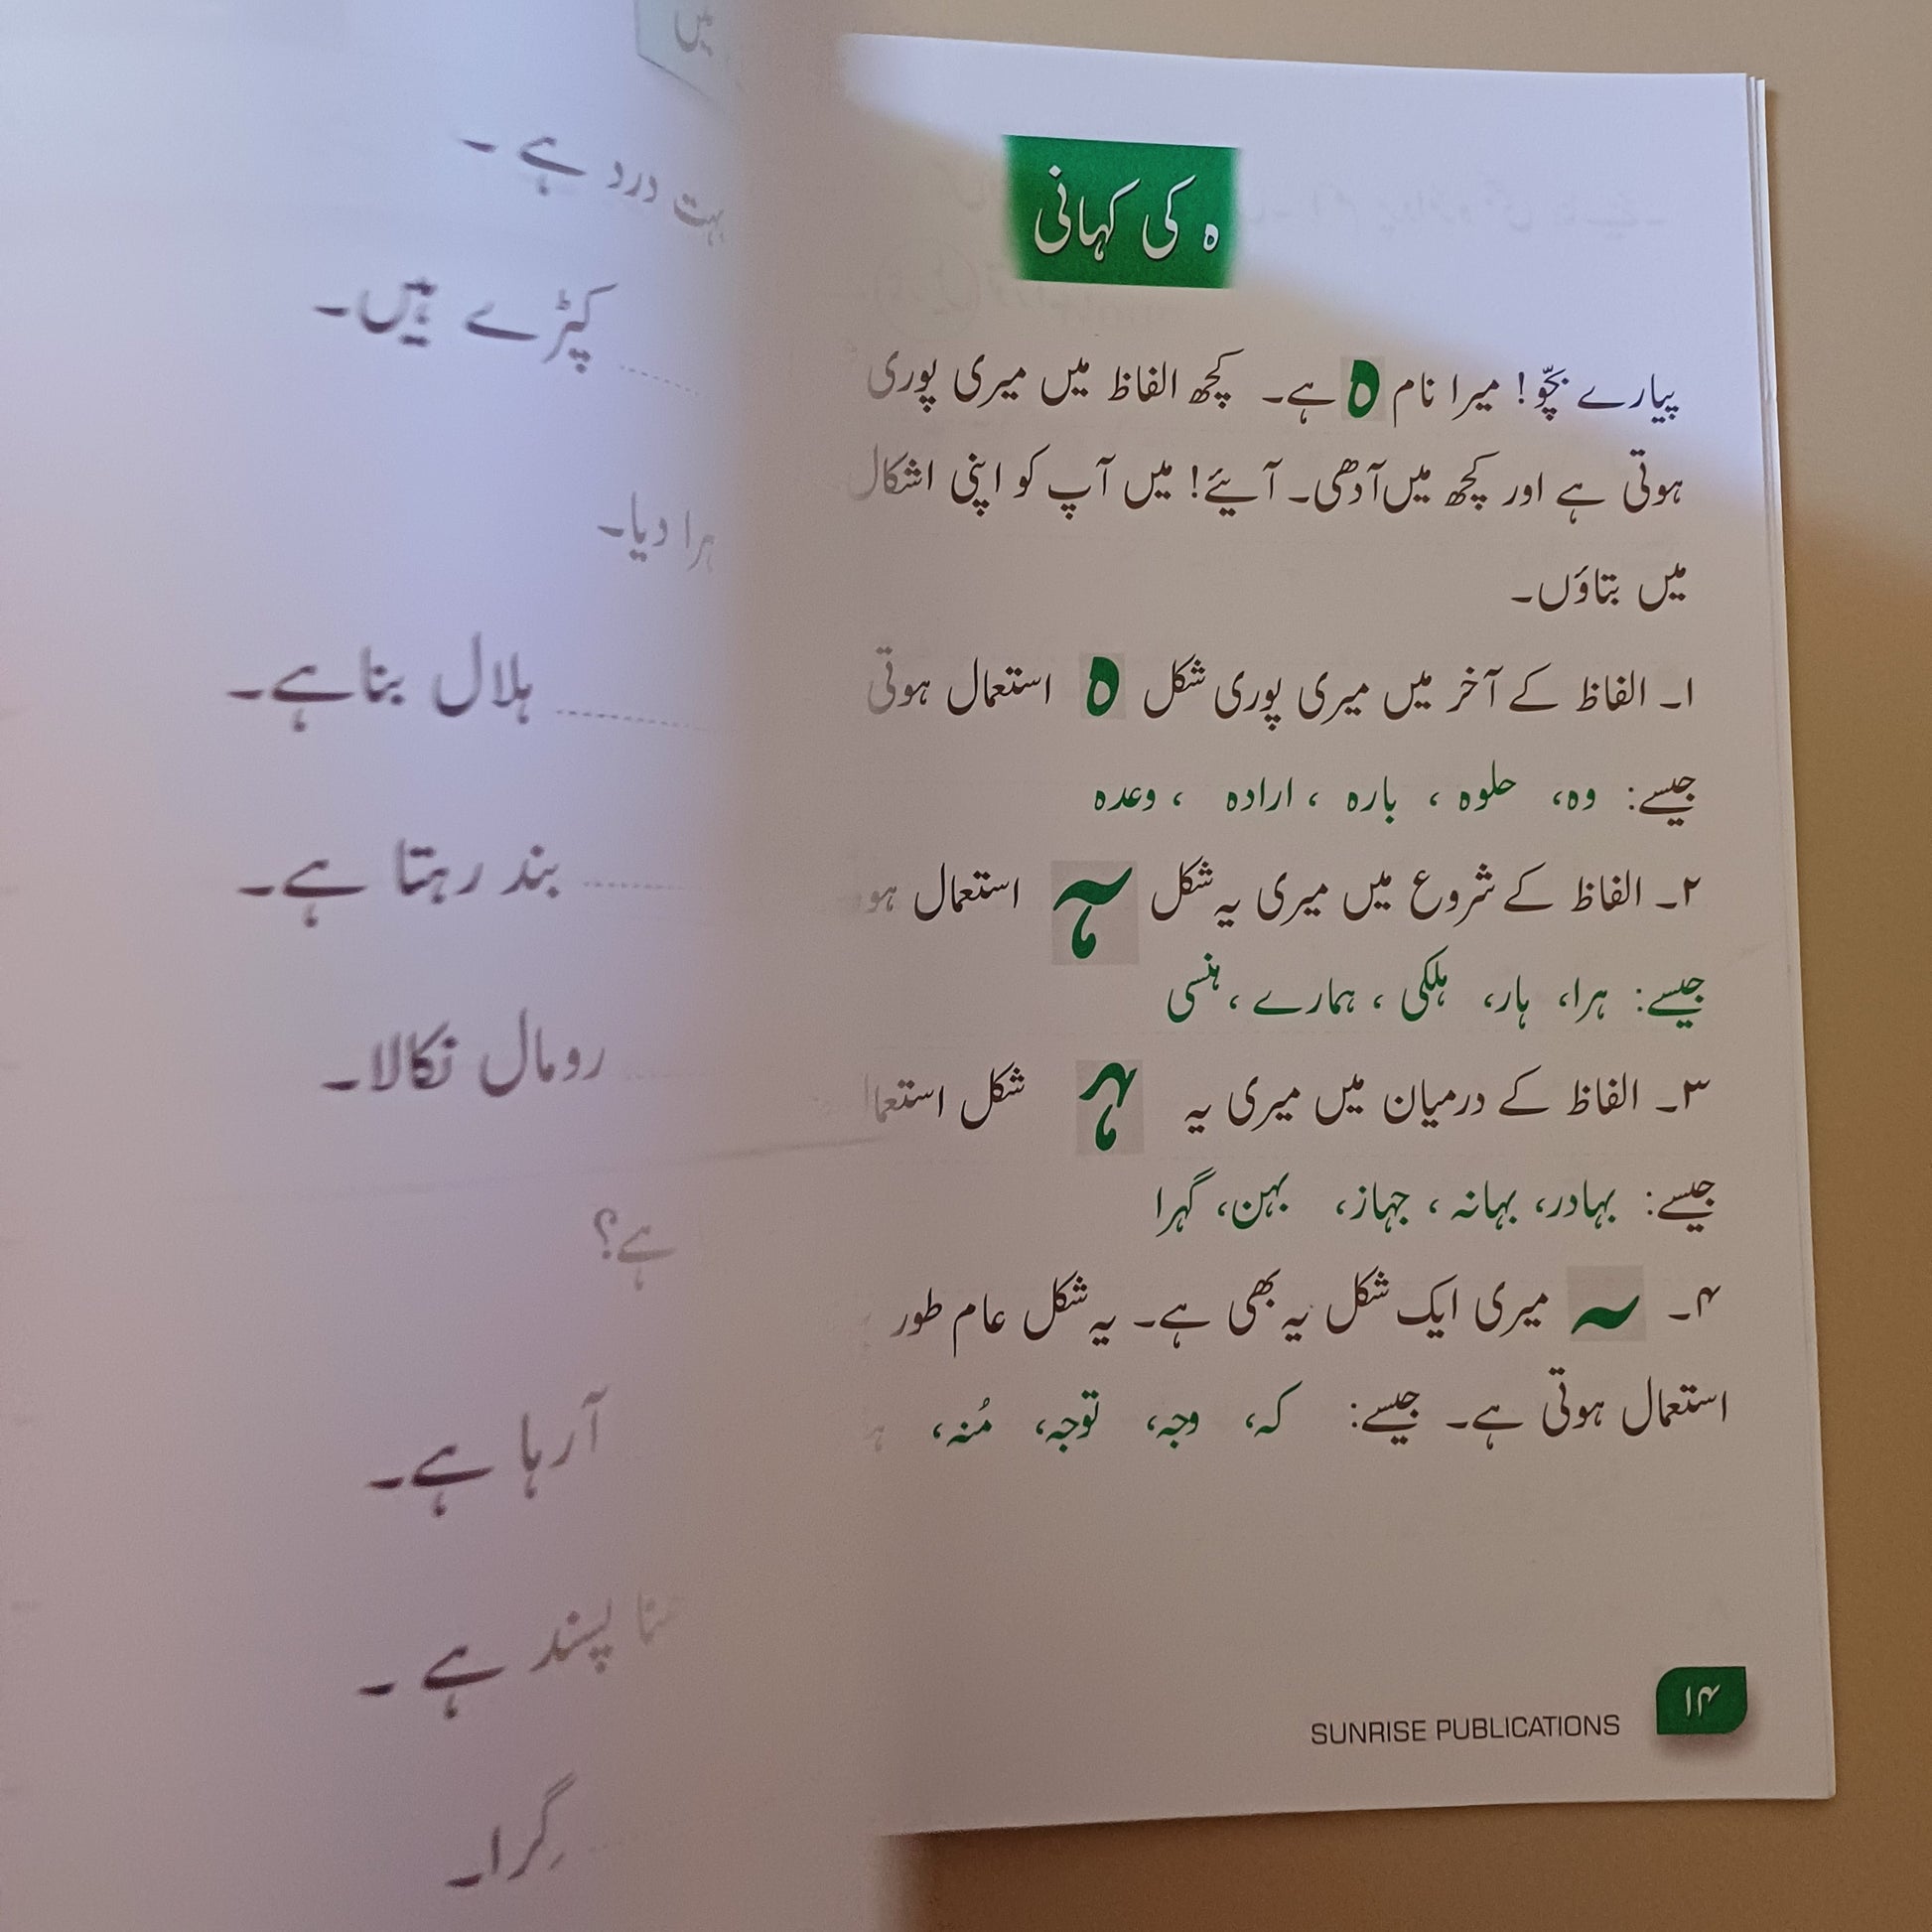 ہ کی کہانی
پیارے بچّو! میرا نام ہ ہے۔ کچھ الفاظ میں میری پوری
ہوتی ہے اور کچھ میں آدھی۔ آیئے! میں آپ کو اپنی اشکال
میں بتاؤں۔
۱۔ الفاظ کے آخر میں میری پوری شکل ہ استعمال ہوتی
جیسے: وہ، حلوہ، بارہ، ارادہ، وعدہ
۲۔ الفاظ کے شروع میں میری یہ شکل ہ استعمال
جیسے: ہرا، ہار، ہلکی، ہمارے، ہنسی
۳۔ الفاظ کے درمیان میں میری یہ ہ شکل
جیسے: بہادر، بہانہ، جہاز، بہن، گہرا
۴۔ ہ میری ایک شکل یہ بھی ہے۔ یہ شکل عام طور
استعمال ہوتی ہے۔ جیسے: کہ، وجہ، توجہ، مُنہ،
۱۴
SUNRISE PUBLICATIONS
میں
بہت درد ہے۔
کپڑے ہیں۔
ہرا دیا۔
ہلال بنا ہے۔
بند رہتا ہے۔
رومال نکالا۔
ہے؟
آرہا ہے۔
پسند ہے۔
گِرا۔